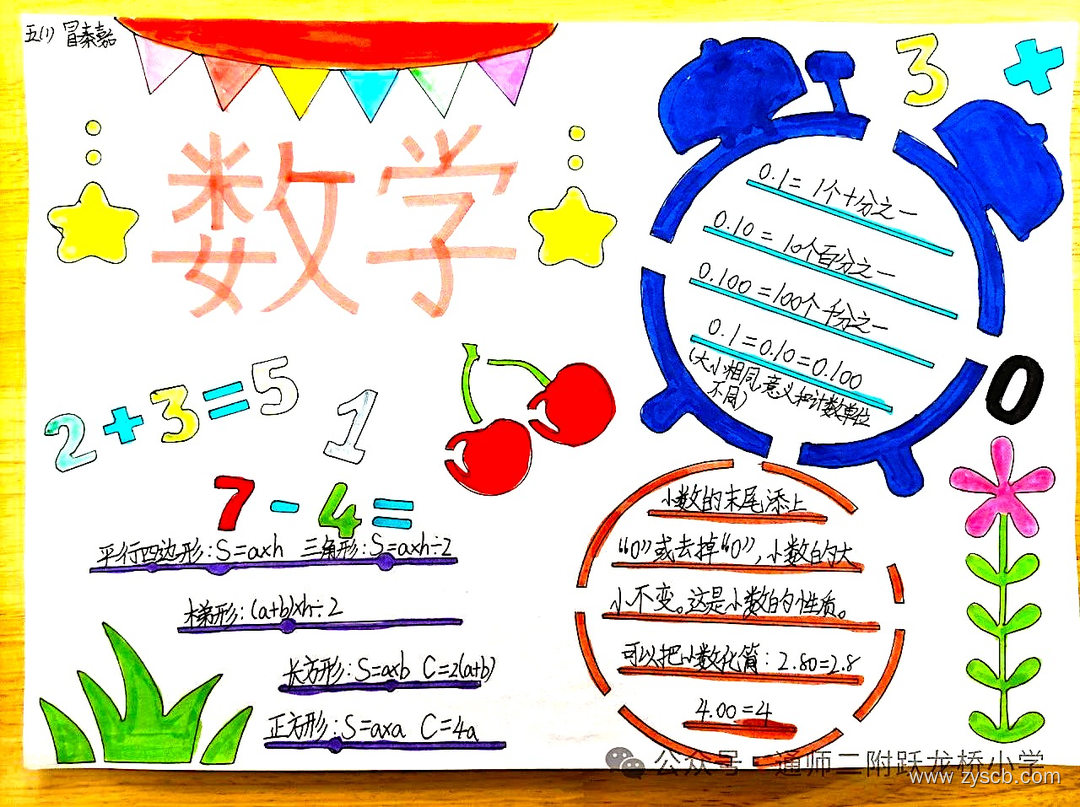 五(1) 冒秦嘉
数学
3 +
0.1=1个十分之一
0.10=10个百分之一
0.100=100个千分之一
0.1=0.10=0.100
(大小相同,意义和计数单位
不同)
0
2+3=5
1
7-4=
平行四边形:S=a×h 三角形:S=a×h÷2
梯形:(a+b)×h÷2
长方形:S=a×b C=2(a+b)
正方形:S=a×a C=4a
小数的末尾添上
“0”或去掉“0”,小数的大
小不变。这是小数的性质。
可以把小数化简:2.80=2.8
4.00=4
公众号 通师二附跃龙桥小学
www.zyscb.com